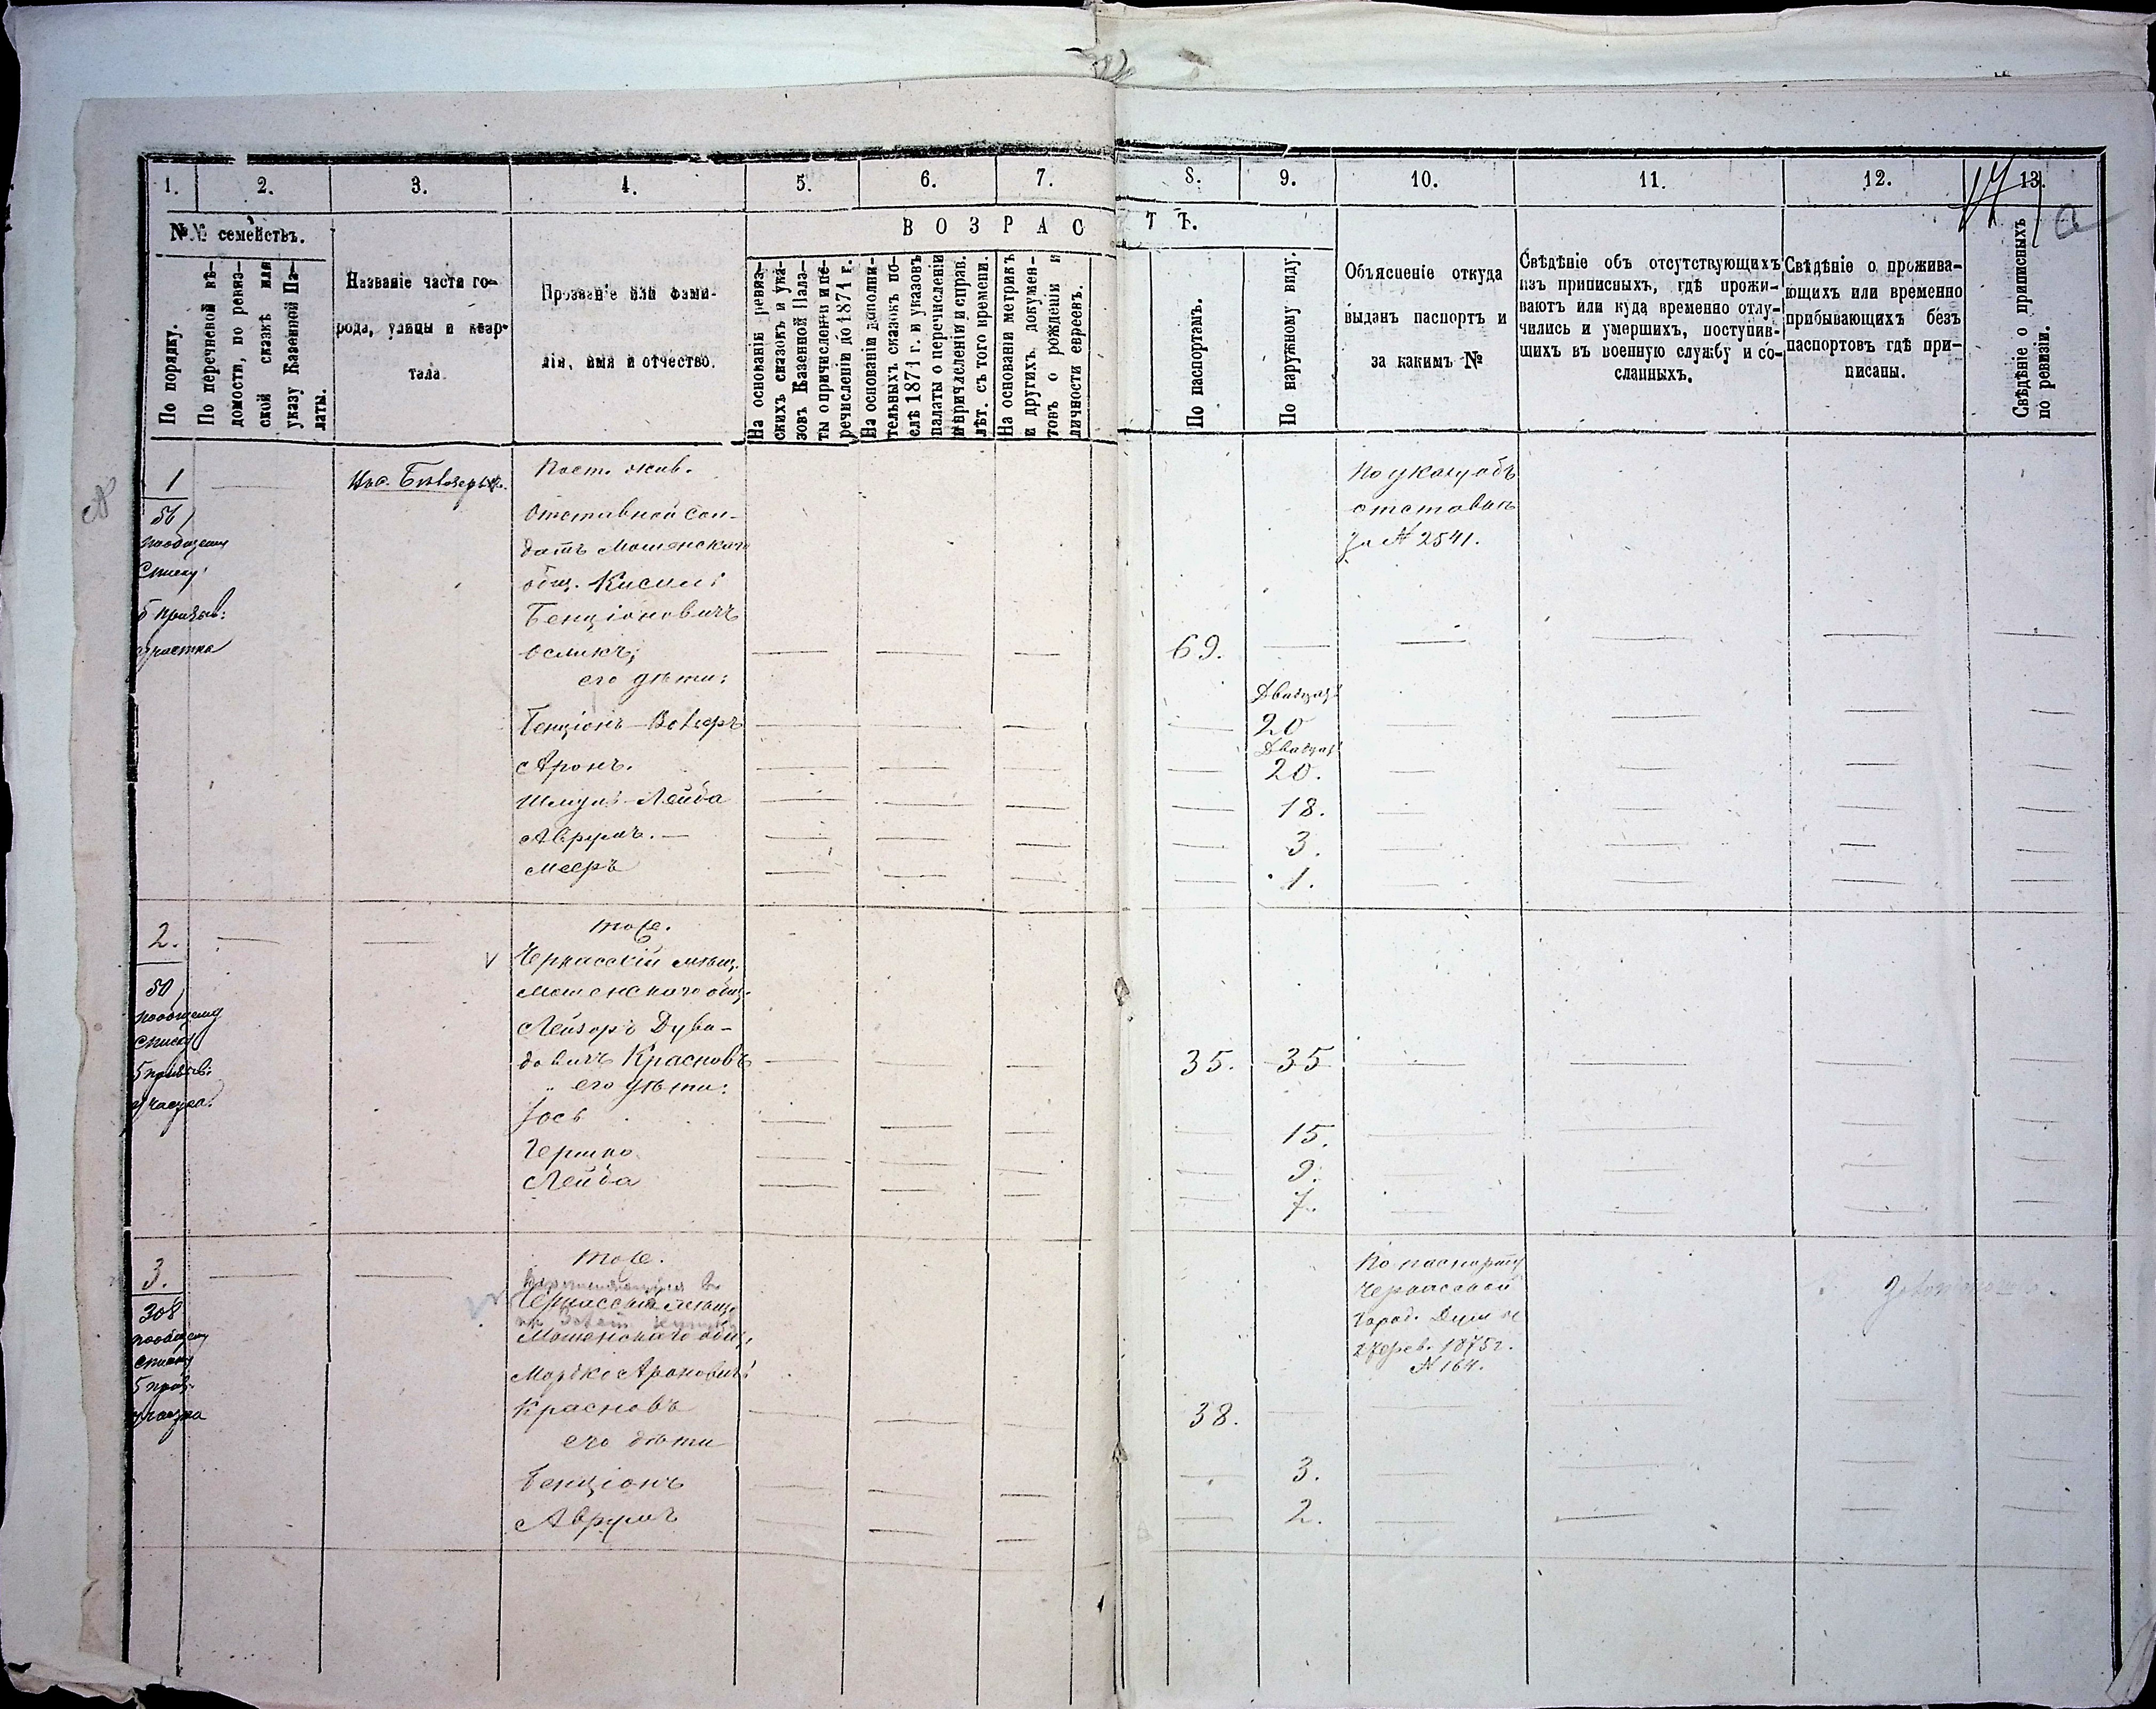 1. 2. 3. 4. 5. 6. 7. 8. 9. 10. 11. 12. 13.
№№ семействъ.
В О З Р А С Т Ъ.
По порядку.
По перечневой вѣ-
домости, по ревиз-
ской сказкѣ или
указу Казенной Па-
латы.
Названіе части го-
рода, улицы и квар-
тала.
Прозваніе или фами-
лія, имя и отчество.
На основаніи ревиз-
скихъ сказокъ и ука-
зовъ Казенной Пала-
ты о причисленіи и пе-
речисленіи до 1874 г.
На основаніи дополни-
тельныхъ сказокъ по-
слѣ 1874 г. и указовъ
палаты о перечисленіи
и причисленіи и справ.
лѣт. съ того времени.
На основаніи метрикъ
и другихъ докумен-
товъ о рожденіи и
личности евреевъ.
По паспортамъ.
По наружному виду.
Объясненіе откуда
выданъ паспортъ и
за какимъ №
Свѣдѣніе объ отсутствующихъ
изъ приписныхъ, гдѣ прожи-
ваютъ или куда временно отлу-
чились и умершихъ, поступив-
шихъ въ военную службу и со-
сланныхъ.
Свѣдѣніе о прожива-
ющихъ или временно
прибывающихъ безъ
паспортовъ гдѣ при-
писаны.
Свѣдѣніе о приписныхъ
по ревизіи.
1
56
по общему
списку
5 призыв:
участка
Пост. жив.
Отставной сол-
датъ Мошенскаго
общ.
Бенціоновичъ
Осликъ;
69.
его дѣти:
Двадцать
Бенціонъ
20
Двадцать
Аронъ.
20.
Шмуль-Лейба
18.
Аврумъ.
3.
Мееръ
1.
По указу объ
отставкѣ
За № 2541.
2.
50
по общему
списку
5 призыв:
участка
тоже.
Черкасскій мѣщ.
Мошенскаго общ.
Лейзоръ Дуви-
довичъ Красновъ
35. 35
его дѣти:
Іось
15.
Гершко
9.
Лейба
7.
3.
308
по общему
списку
5 приз.
участка
тоже.
Черкасскій мѣщ.
Мошенскаго общ.
Мордко Ароновичъ
Красновъ
38.
его дѣти
Бенціонъ
3.
Аврумъ
2.
По паспорту
Черкасской
Город. Думы
1875 г.
№ 164.